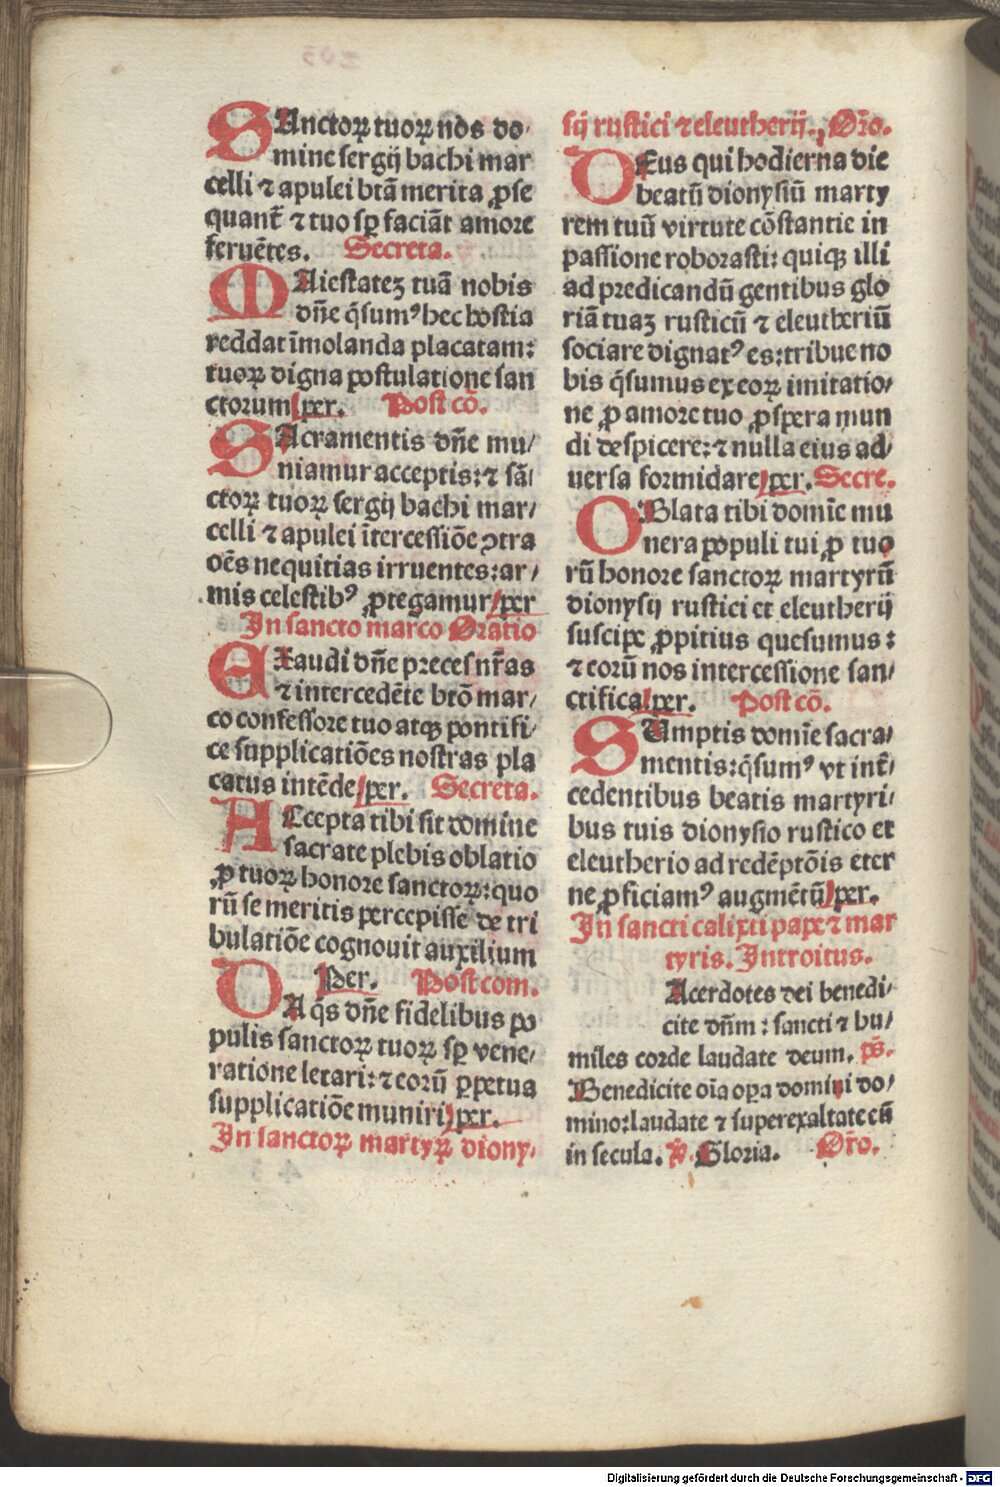 SAnctoꝝ tuoꝝ nos do-
mine sergij bachi mar
celli ⁊ apulei btā merita ꝓse
quant̄ ⁊ tuo sꝑ faciāt amore
feruētes. Secreta.
MAiestatez tuā nobis
dn̄e q̄sumꝰ hec hostia
reddat īmolanda placatam:
tuoꝝ digna postulatione san
ctorum per. Post cō.
SAcramentis dn̄e mu/
niamur acceptis: ⁊ sā/
ctoꝝ tuoꝝ sergij bachi mar/
celli ⁊ apulei ītercessiōe ꝯtra
oēs nequitias irruentes: ar/
mis celestibꝰ ꝓtegamur per
In sancto marco Oratio
EXaudi dn̄e preces nr̄as
⁊ intercedēte btō mar/
co confessore tuo atqꝫ pontifi/
ce supplicatiōes nostras pla
catus intēde per. Secreta.
ACcepta tibi sit domine
sacrate plebis oblatio
ꝓ tuoꝝ honore sanctoꝝ: quo
rū se meritis percepisse de tri
bulatiōe cognouit auxilium
Per. Postcom.
DA q̄s dn̄e fidelibus po
pulis sanctoꝝ tuoꝝ sꝑ vene/
ratione letari: ⁊ eorū ꝑpetua
supplicatiōe muniri per.
In sanctoꝝ martyꝝ diony/
sij rustici ⁊ eleutherij. Or̄o.
DEus qui hodierna die
beatū dionysiū marty
rem tuū virtute cōstantie in
passione roborasti: quiqꝫ illi
ad predicandū gentibus glo
riā tuaꝫ rusticū ⁊ eleutheriū
sociare dignatꝰ es: tribue no
bis q̄sumus ex eoꝝ imitatio/
ne ꝓ amore tuo ꝓspera mun
di despicere: ⁊ nulla eius ad/
uersa formidare per. Secre.
OBlata tibi domīe mu
nera populi tui ꝓ tuo
rū honore sanctoꝝ martyrū
dionysij rustici et eleutherij
suscipe ꝓpitius quesumus:
⁊ eorū nos intercessione san/
ctifica per. Post cō.
SUmptis domīe sacra/
mentis: q̄sumꝰ vt int̄/
cedentibus beatis martyri/
bus tuis dionysio rustico et
eleutherio ad redēptōis eter
ne ꝓficiamꝰ augmētū per.
In sancti calixti pape ⁊ mar
tyris. Introitus.
Acerdotes dei benedi/
cite dn̄m: sancti ⁊ hu/
miles corde laudate deum. ps̄.
Benedicite oīa oꝑa domini do/
mino: laudate ⁊ superexaltate eū
in secula. ℣. Gloria. Or̄o.
Digitalisierung gefördert durch die Deutsche Forschungsgemeinschaft - DFG